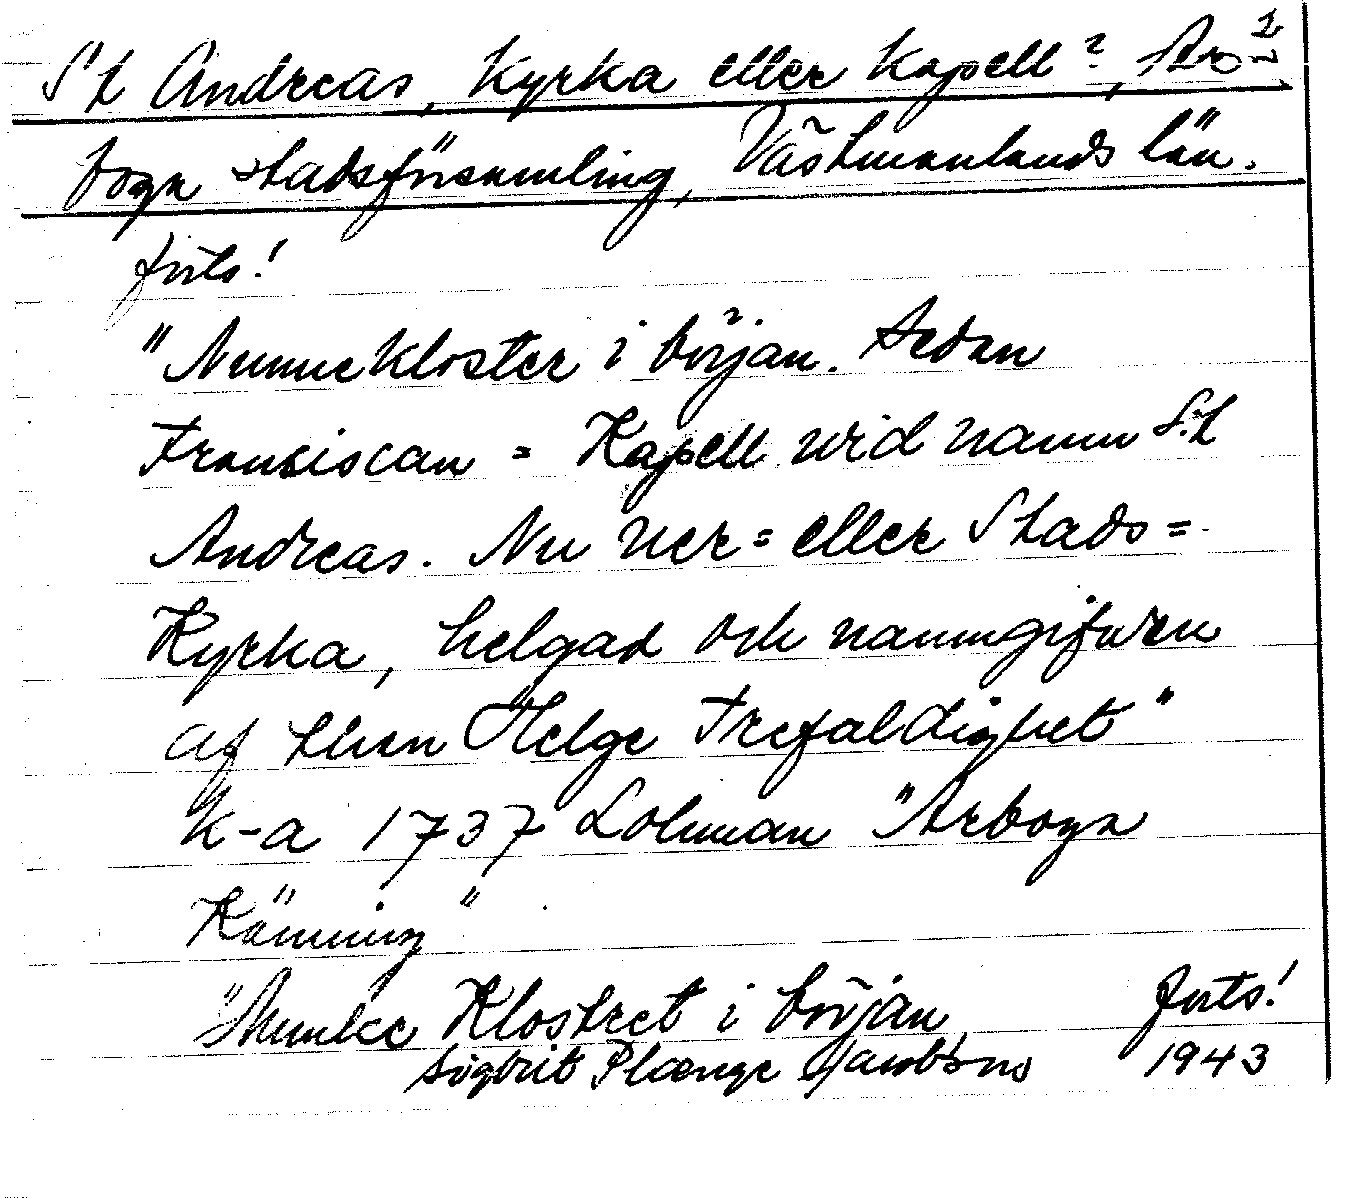 St Andreas, Kyrka eller Kapell?, Ar-
boga stadsförsamling, Västmanlands län.
forts!
"Nunnekloster i början. Sedan
Franciscan = Kapell wid namn S:t
Andreas. Nu ner = eller Stads =
Kyrka, helgad och namngifwen
af then Helge Trefaldighet"
K-a 1737 Lohman "Arboga
Känning"
"Munke Klostret i början forts!
Sigbrit Plænge Jacobson 1943